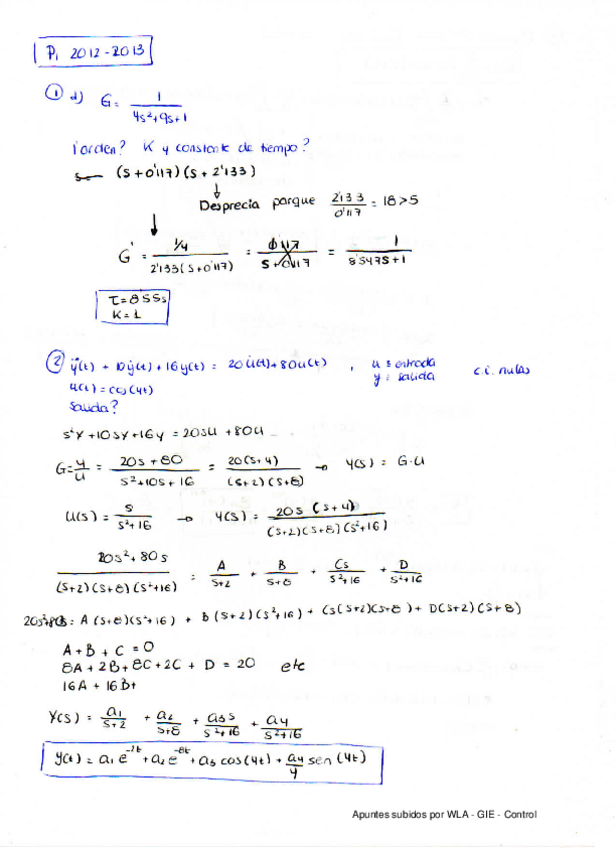 P1 2012-2013
① d) G = 1 / (4s²+9s+1)
¿orden? K y constante de tiempo?
(s+0'117)(s+2'133)
Desprecia porque 2'133 / 0'117 = 18 > 5
G' = (1/4) / (2'133(s+0'117)) = 0'117 / (s+0'117) = 1 / (8'547s+1)
τ = 8'55s
K = 1
② ÿ(t) + 10ẏ(t) + 16y(t) = 20u̇(t) + 80u(t) , u ≡ entrada c.i. nulas
y ≡ salida
u(t) = cos(4t)
Salida?
s²Y + 10sY + 16Y = 20sU + 80U
G = Y/U = (20s+80) / (s²+10s+16) = 20(s+4) / ((s+2)(s+8)) → Y(s) = G·U
U(s) = s / (s²+16) → Y(s) = 20s (s+4) / ((s+2)(s+8)(s²+16))
(20s²+80s) / ((s+2)(s+8)(s²+16)) = A/(s+2) + B/(s+8) + Cs/(s²+16) + D/(s²+16)
20s²+80s = A(s+8)(s²+16) + B(s+2)(s²+16) + Cs(s+2)(s+8) + D(s+2)(s+8)
A+B+C = 0
8A + 2B + 8C + 2C + D = 20 etc
16A + 16B+
Y(s) = a1/(s+2) + a2/(s+8) + a3s/(s²+16) + a4/(s²+16)
y(t) = a1 e^-2t + a2 e^-8t + a3 cos(4t) + a4/4 sen(4t)
Apuntes subidos por WLA - GIE - Control